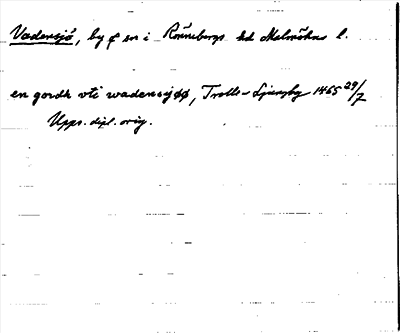 Vadensjö, by o sn i Rönnebergs hd Malmöhus l.
en gordh vti wadensiøø, Trolle-Ljungby 1465 29/7
Upps. dipl. orig.